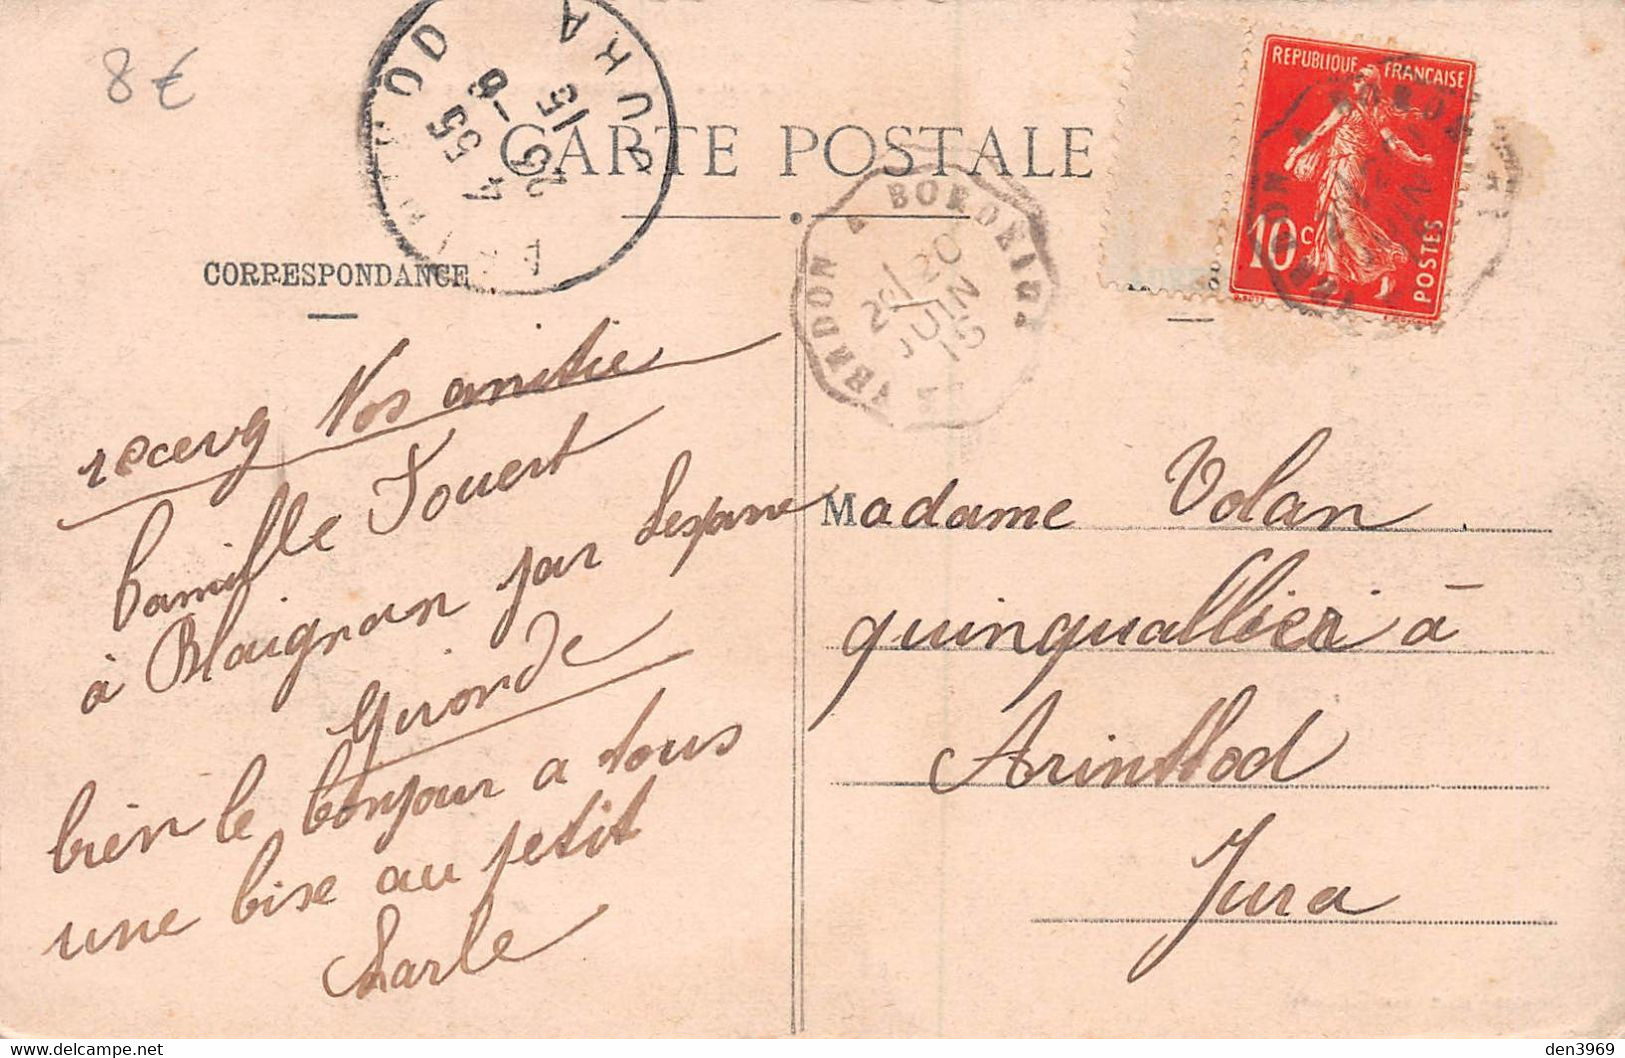 8€
CARTE POSTALE
CORRESPONDANCE
JURA
4 55
25-6
15
VERDON A BORDEAUX
20
JUIN
15
REPUBLIQUE FRANÇAISE
10c
POSTES
recevez Nos amitie
bamille Jouert
à Blaignan par Lesparre
Gironde
bien le bonjour a tous
une bise au petit
Charle
Madame Volan
quinquallier à
Arinthod
Jura
den3969